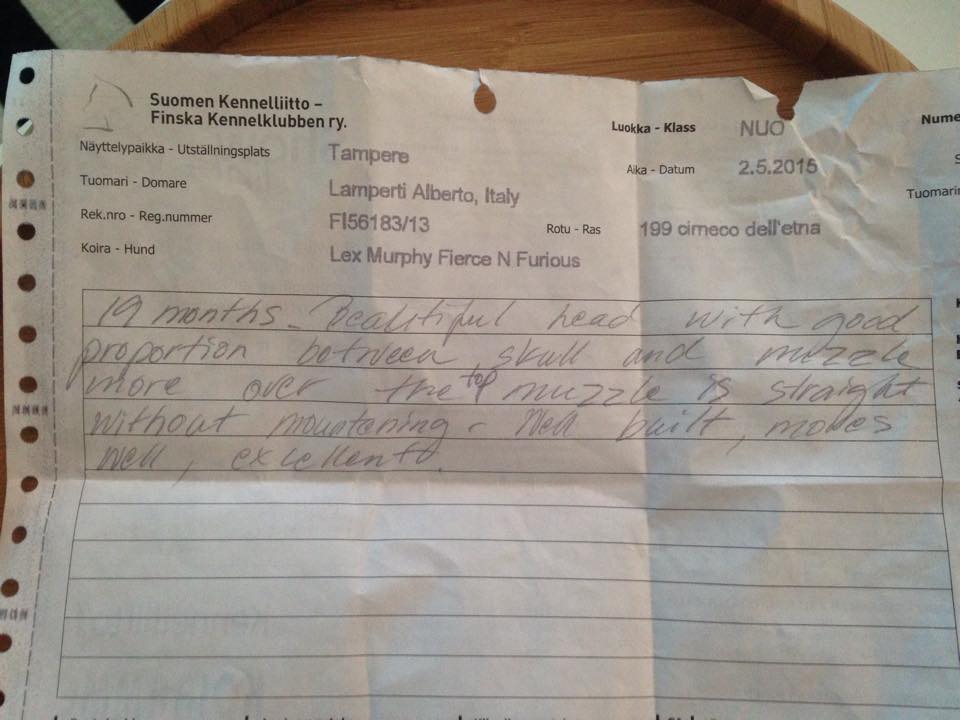 Suomen Kennelliitto –
Finska Kennelklubben ry.
Luokka - Klass NUO Nume
Näyttelypaikka - Utställningsplats Tampere
Aika - Datum 2.5.2015
Tuomari - Domare Lamperti Alberto, Italy Tuomarin
Rek.nro - Reg.nummer FI56183/13 Rotu - Ras 199 cirneco dell'etna
Koira - Hund Lex Murphy Fierce N Furious
19 months - Beautiful head with good
proportion between skull and muzzle
more over the top muzzle is straight
without mountening - Well built, moves
well, excellent.